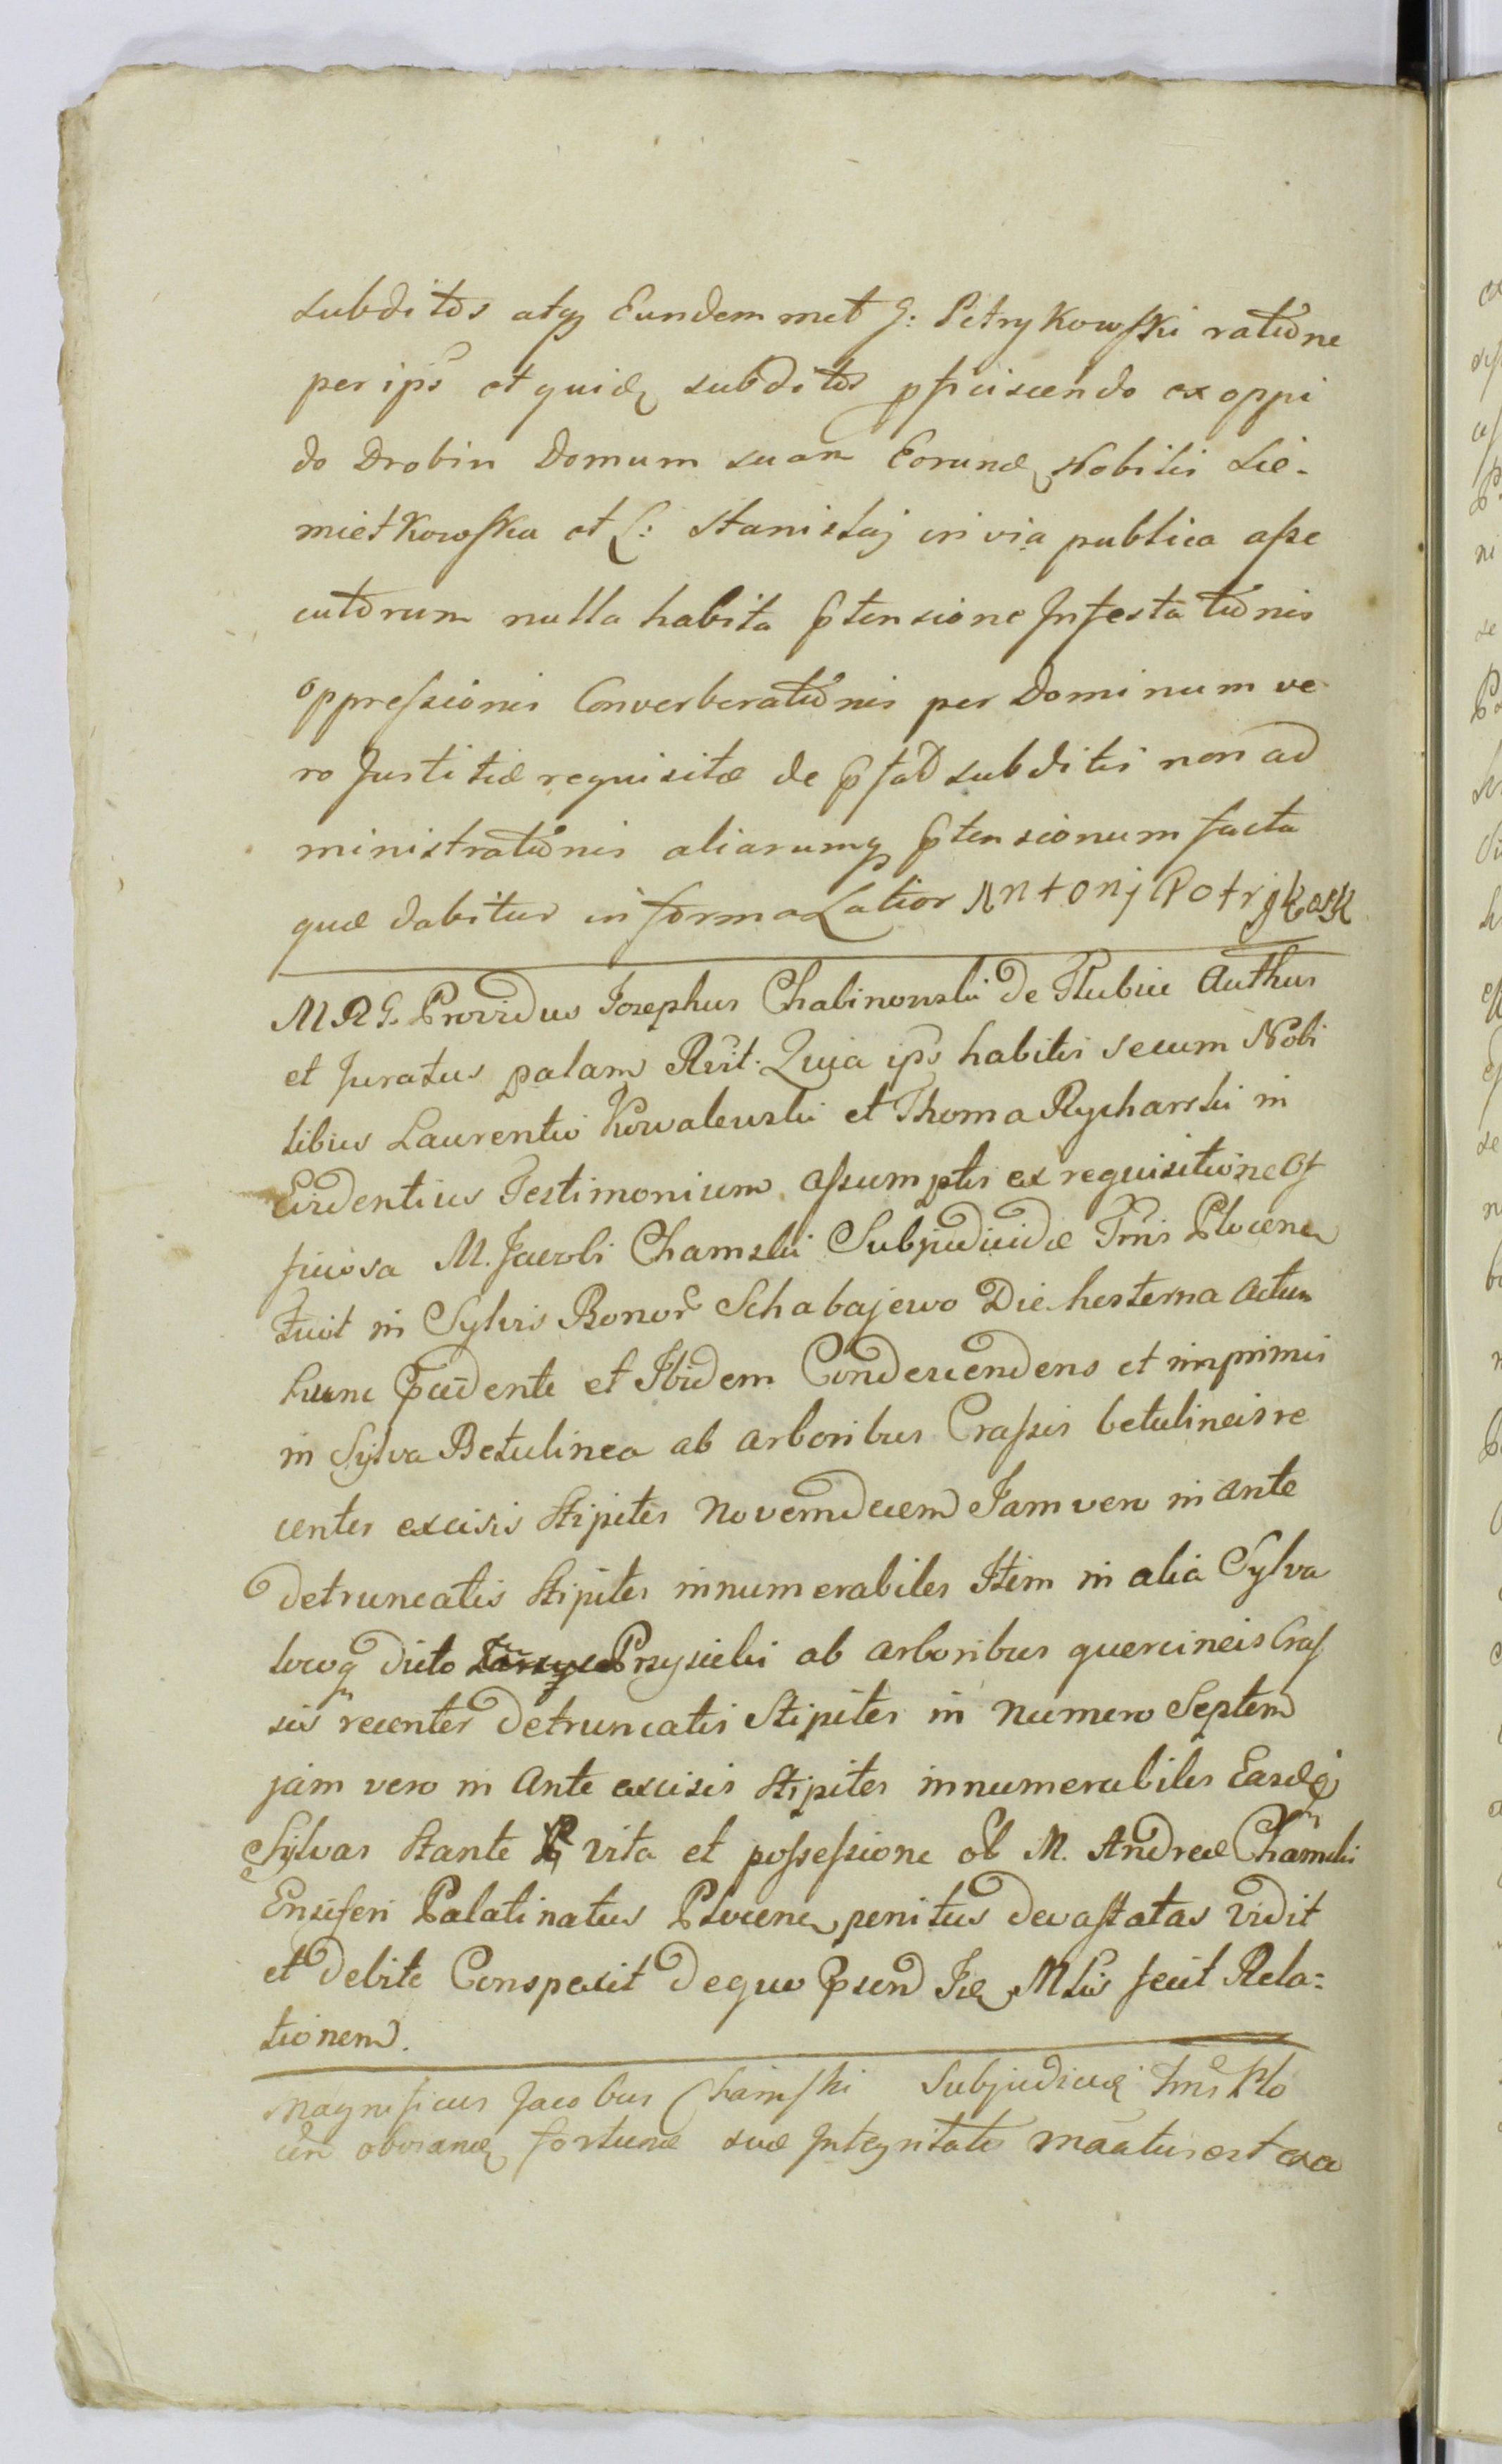 subditos atq Eundemmet G: Petrykowski ratione
per ips et quidq subditos pficiscendo ex oppi
do Drobin Domum suam Eorundq Nobilis Sie-
mietkowska et L: Stanislai in via publica asse
cutorum nulla habita Ptensione Infestationis
oppressionis Converberationis per Dominum ve
ro Justitiæ requisitæ de Pfad subditis non ad
ministrationis aliarumq Ptensionum facta
quæ dabitur in forma Latior Antonj Potrjkosk
MRG. Providus Josephus Chabinowski de Tłubice Authus
et Juratus palam Rvit. Quia ips habitis secum Nobi
libus Laurentio Kowalewski et Thoma Rycharski in
Evidentius Testimonium assumptis ex requisitione Of
ficiosa M. Jacobi Chamski Subjudicidæ Trris Plocen
fuit in Sylvis Bonor Schabajewo Die hesterna Actum
hunc Pcedente et Ibidem Condescendens et imprimis
in Sylva Betulinea ab arboribus Crassis betulineis re
center excisis Stipites Novemdecem Jam vero in ante
detruncatis Stipites innumerabiles Item in alia Sylva
locoq dicto Przysieki ab arboribus quercineis Cras
sis recenter detruncatis Stipites in numero Septem
jam vero in Ante excisis Stipites innumerabiles Easdq
Sylvas Stante vita et possessione ol M. Andreæ Chamski
Ensiferi Palatinatus Plocen penitus devastatas vidit
et debite Conspexit de quo Psens Idq Mlis fecit Rela=
tionem.
Magnificus Jacobus Chamski Subjudicq Trris Plo
cen obviandq fortunæ suæ Integritate est exa